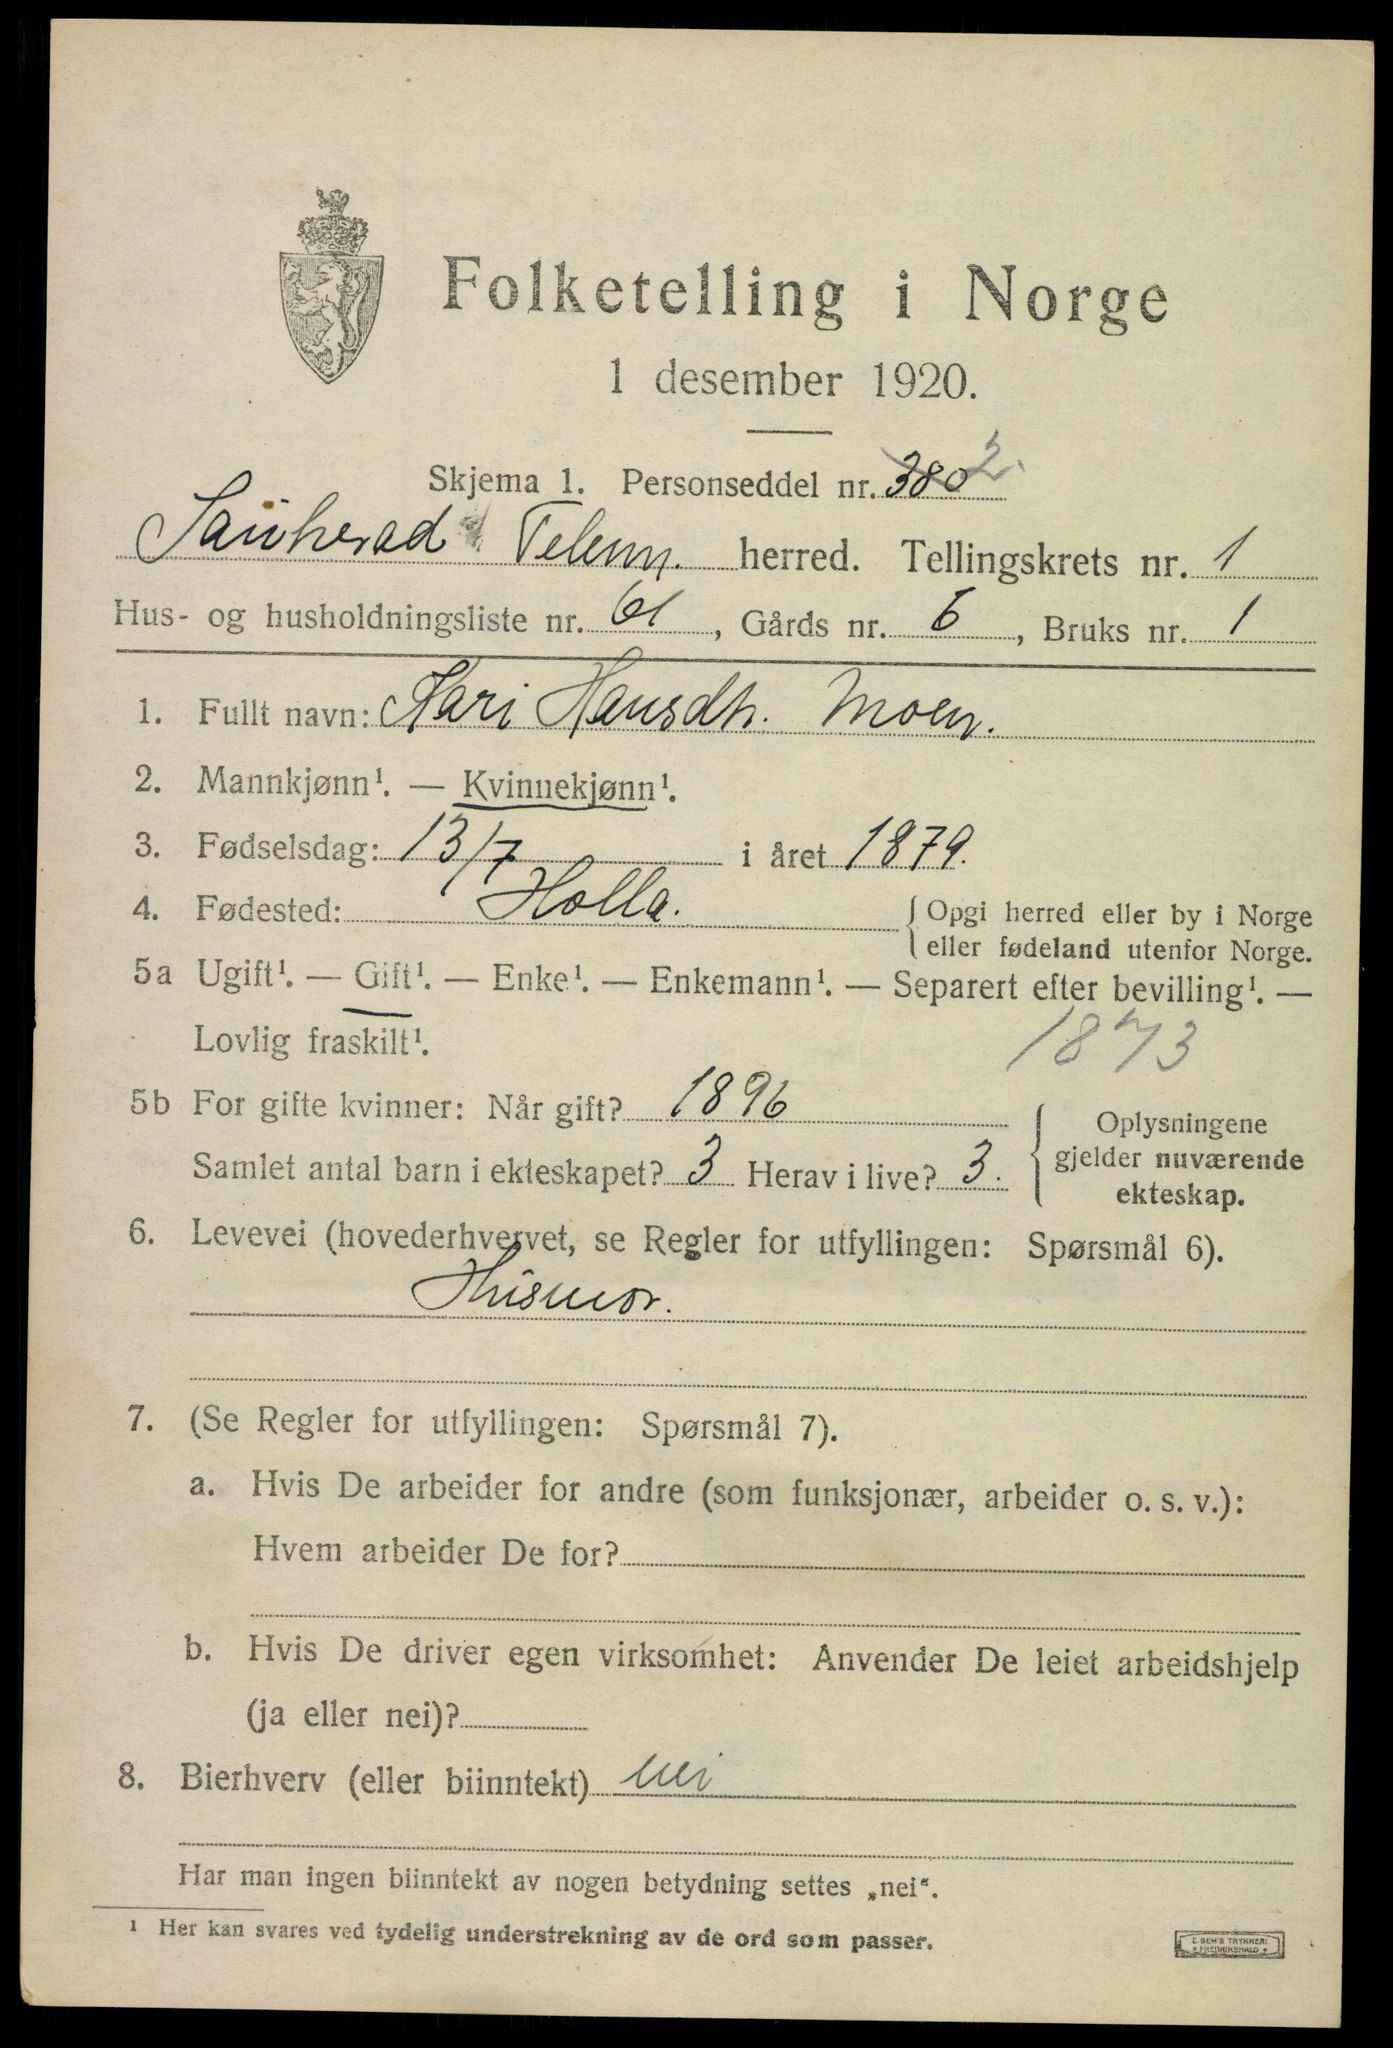 Folketelling i Norge
1 desember 1920.
Skjema 1. Personseddel nr. 380 2.
Sauherad Telem. herred. Tellingskrets nr. 1
Hus- og husholdningsliste nr. 61, Gårds nr. 6, Bruks nr. 1
1. Fullt navn: Kari Hansdtr. Moen.
2. Mannkjønn¹. — Kvinnekjønn¹.
3. Fødselsdag: 13/7 i året 1879.
4. Fødested: Holla. { Opgi herred eller by i Norge
eller fødeland utenfor Norge.
5a Ugift¹. — Gift¹. — Enke¹. — Enkemann¹. — Separert efter bevilling¹. —
Lovlig fraskilt¹. 1873
5b For gifte kvinner: Når gift? 1896
Samlet antal barn i ekteskapet? 3 Herav i live? 3.
{ Oplysningene
gjelder nuværende
ekteskap.
6. Levevei (hovederhvervet, se Regler for utfyllingen: Spørsmål 6).
Husmor.
7. (Se Regler for utfyllingen: Spørsmål 7).
a. Hvis De arbeider for andre (som funksjonær, arbeider o. s. v.):
Hvem arbeider De for?
b. Hvis De driver egen virksomhet: Anvender De leiet arbeidshjelp
(ja eller nei)?
8. Bierhverv (eller biinntekt) nei
Har man ingen biinntekt av nogen betydning settes „nei".
¹ Her kan svares ved tydelig understrekning av de ord som passer.
E. SEM'S TRYKKERI
* FREDRIKSHALD *